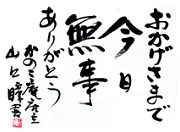 おかげさまで
今日
無事
ありがとう
かのこ庵主
山口瞳書